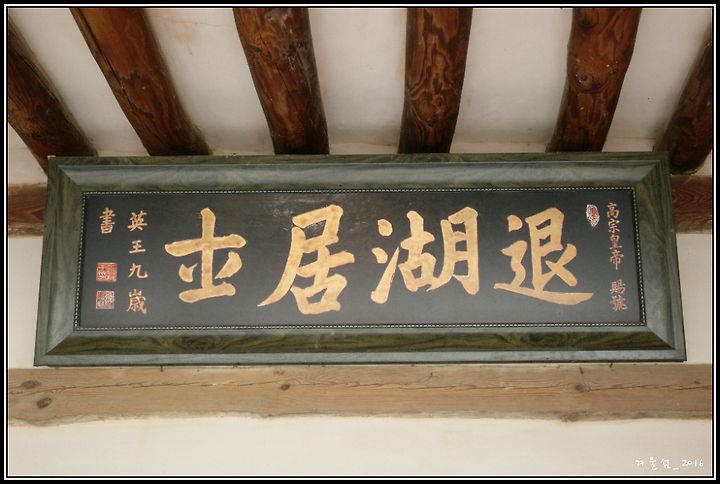 高宗皇帝 賜號
退湖居士
英王九歲
書
겨울섬_2016